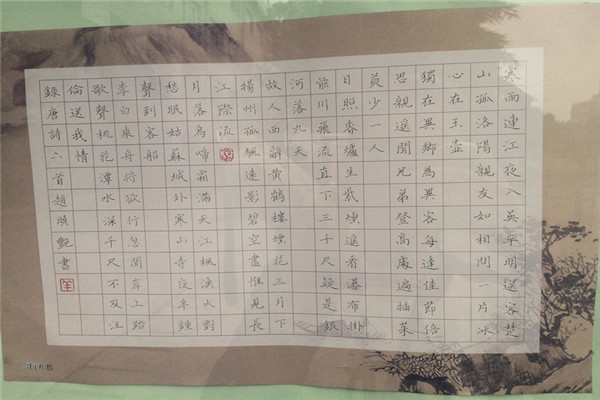 寒雨連江夜入吳平明送客楚
山孤洛陽親友如相問一片冰
心在玉壺
獨在異鄉為異客每逢佳節倍
思親遥聞兄弟登高處遍插茱
萸少一人
日照香爐生紫煙遥看瀑布掛
前川飛流直下三千尺疑是銀
河落九天
故人西辭黃鶴樓煙花三月下
揚州孤帆遠影碧空盡惟見長
江際流
月落烏啼霜滿天江楓漁火對
愁眠姑蘇城外寒山寺夜半鐘
聲到客船
李白乘舟將欲行忽聞岸上踏
歌聲桃花潭水深千尺不及汪
倫送我情
錄唐詩六首趙煥艷書